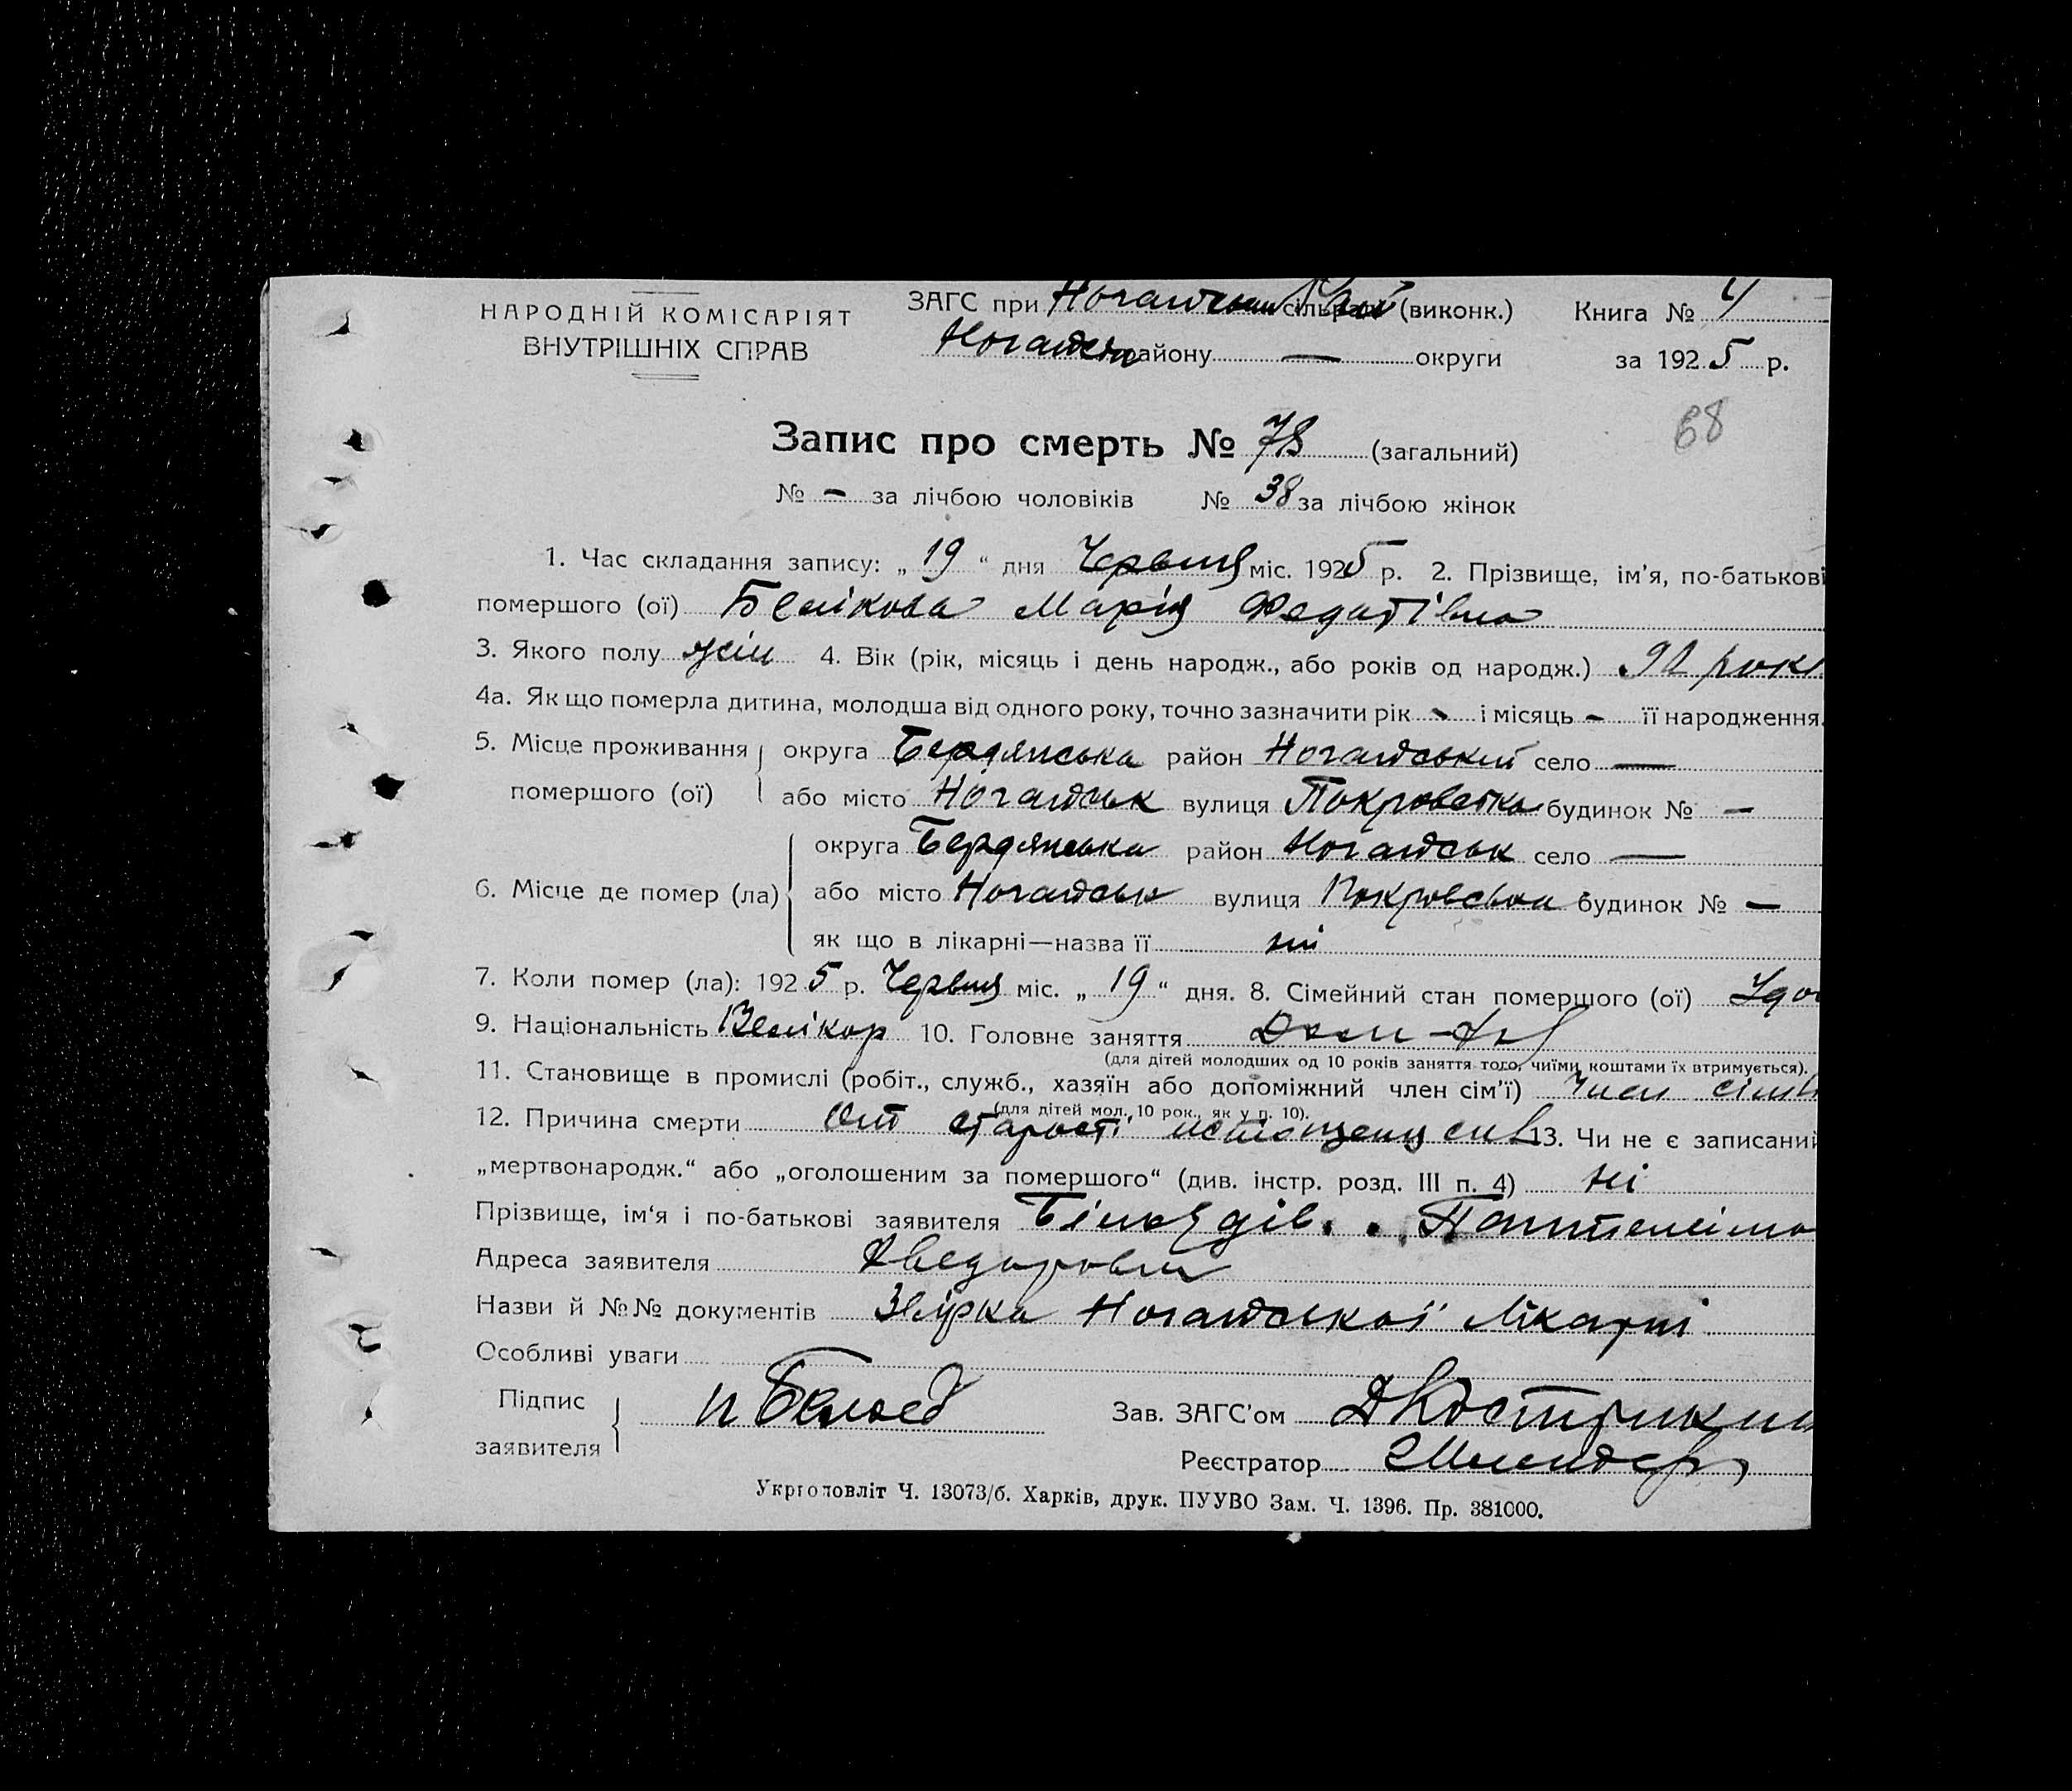 НАРОДНІЙ КОМІСАРІЯТ
ВНУТРІШНІХ СПРАВ
ЗАГС при сільраді (виконк.)
району — округи
Книга № 4
за 1925 р.
68
Запис про смерть № 78 (загальний)
№ – за лічбою чоловіків № 38 за лічбою жінок
1. Час складання запису: „ 19 “ дня Червня міс. 1925 р. 2. Прізвище, ім’я, по-батькові
помершого (ої) Белікова Марія
3. Якого полу жін 4. Вік (рік, місяць і день народж., або років од народж.) роки
4а. Як що померла дитина, молодша від одного року, точно зазначити рік - і місяць - її народження.
5. Місце проживання
помершого (ої)
округа Бердянська район Ногайський село —
або місто Ногайськ вулиця Покровська будинок № –
6. Місце де помер (ла)
округа Бердянська район Ногайськ село —
або місто Ногайськ вулиця Покровська будинок № –
як що в лікарні—назва її ні
7. Коли помер (ла): 1925 р. Червня міс. „ 19 “ дня. 8. Сімейний стан помершого (ої) Удо
9. Національність Велікор 10. Головне заняття
(для дітей молодших од 10 років заняття того, чиїми коштами їх втримується).
11. Становище в промислі (робіт., служб., хазяїн або допоміжний член сім’ї) Член сімь
(для дітей мол. 10 рок., як у п. 10).
12. Причина смерти От старості 13. Чи не є записаний
„мертвонародж.“ або „оголошеним за помершого“ (див. інстр. розд. III п. 4) ні
Прізвище, ім‘я і по-батькові заявителя
Адреса заявителя
Назви й №№ документів Ногайської Лікарні
Особливі уваги
Підпис
заявителя
Зав. ЗАГС’ом
Реєстратор
Укрголовліт Ч. 13073/б. Харків, друк. ПУУВО Зам. Ч. 1396. Пр. 381000.